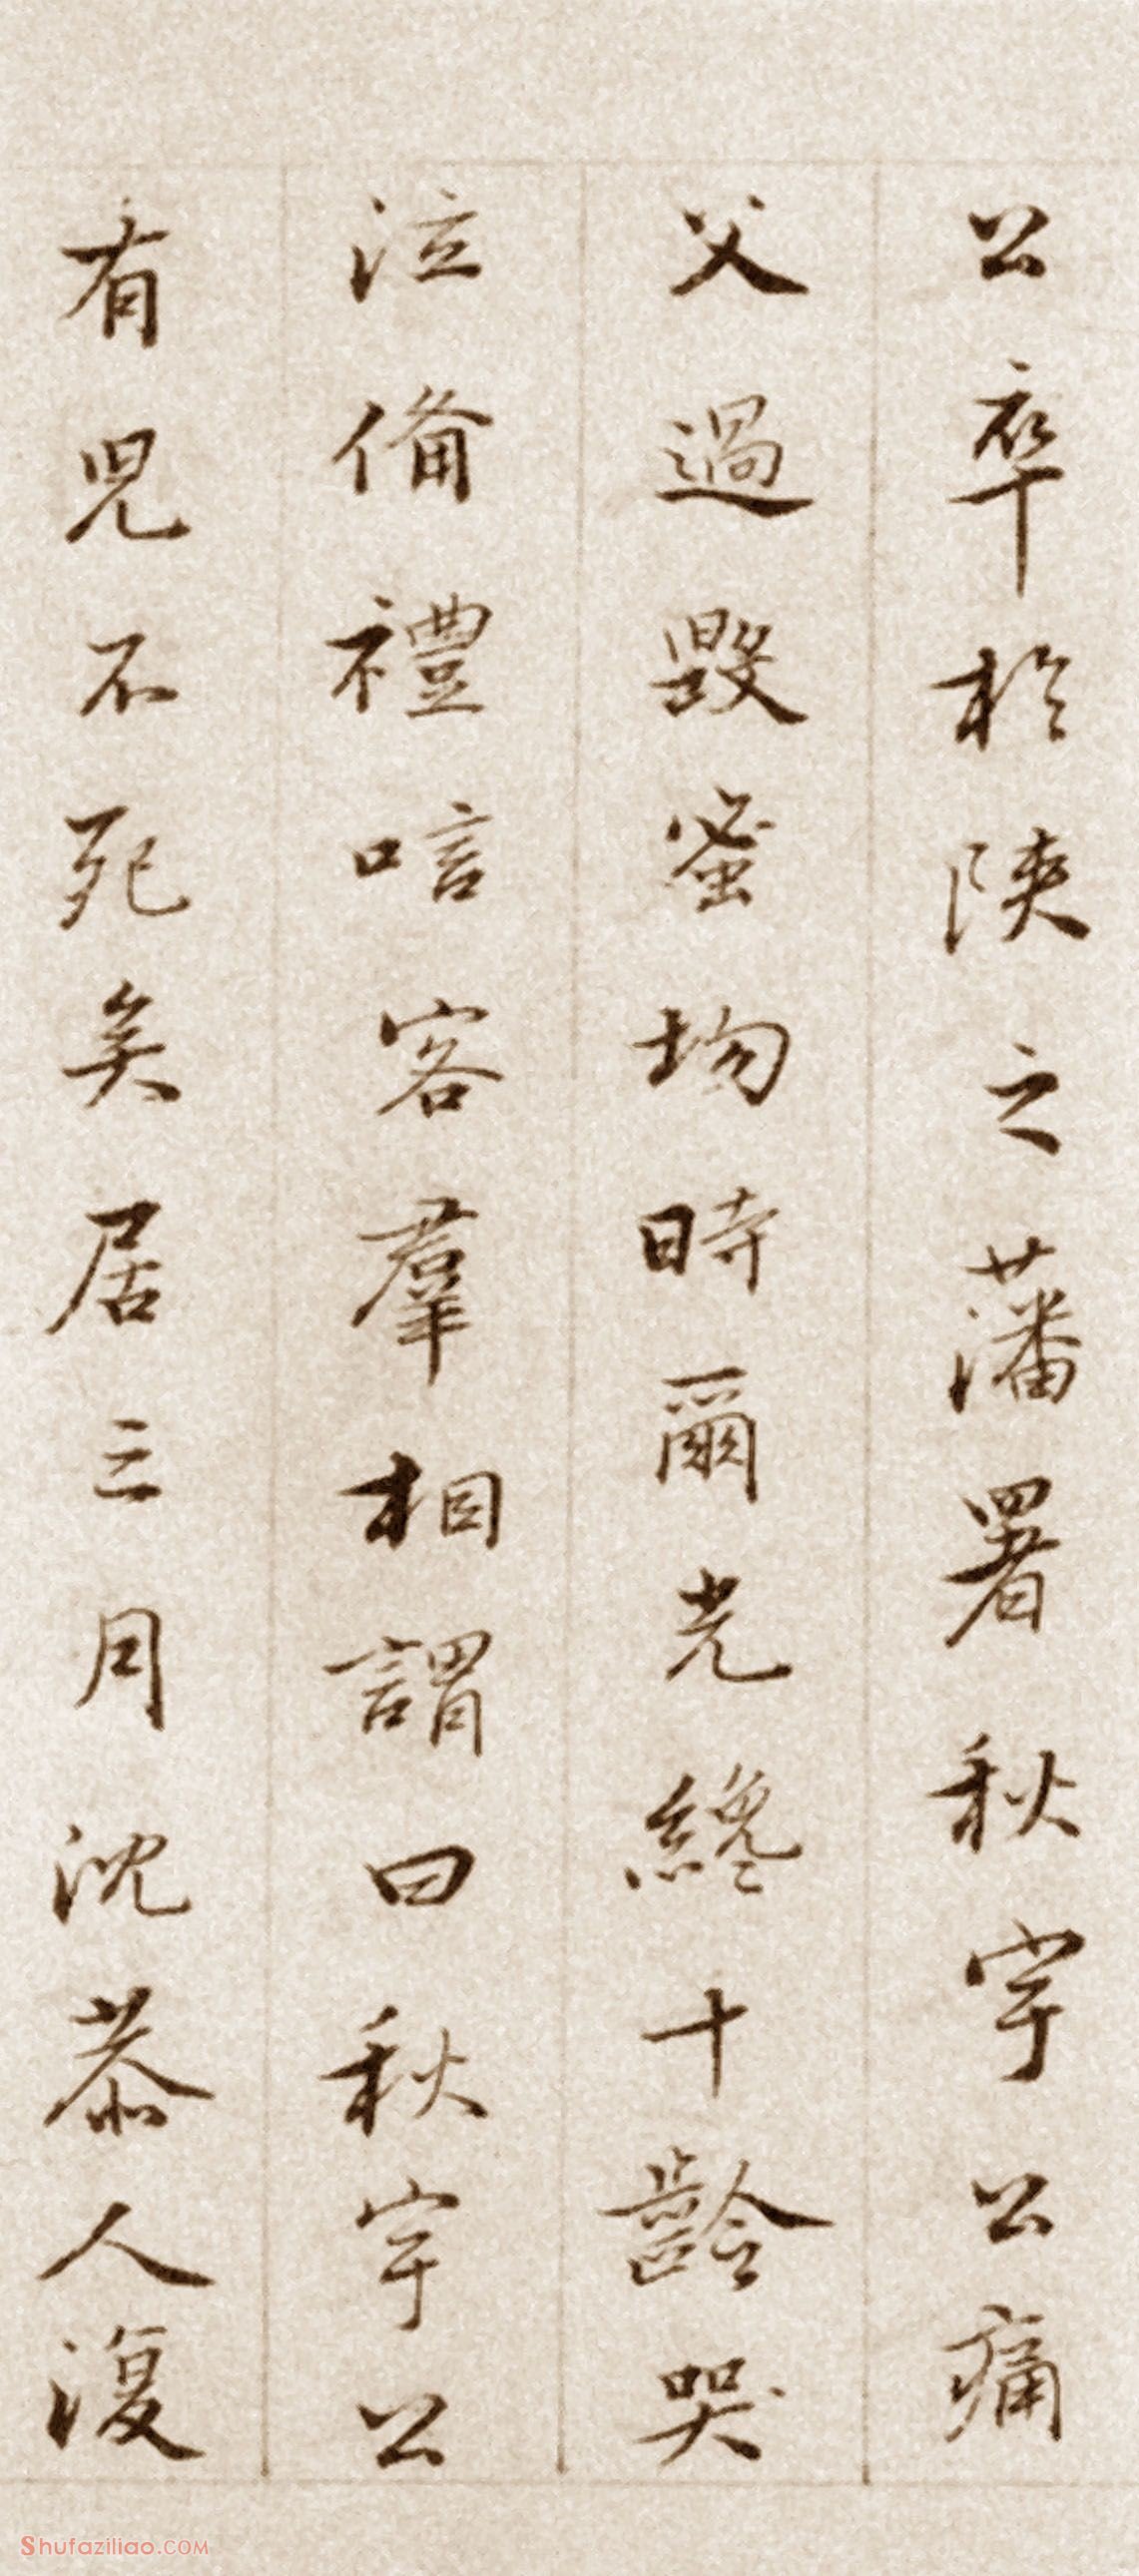 公卒於陝之藩署秋宇公痛
父過毀蚤歾時爾光纔十齡哭
泣備禮唁客羣相謂曰秋宇公
有兒不死矣居三月沈恭人復
Shufaziliao.COM